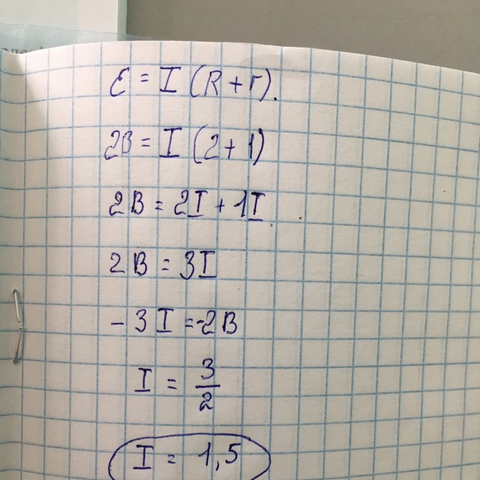 ε = I (R + r).
2В = I (2 + 1)
2В = 2I + 1I.
2В = 3I
- 3I = -2В
I = 3/2
I = 1,5